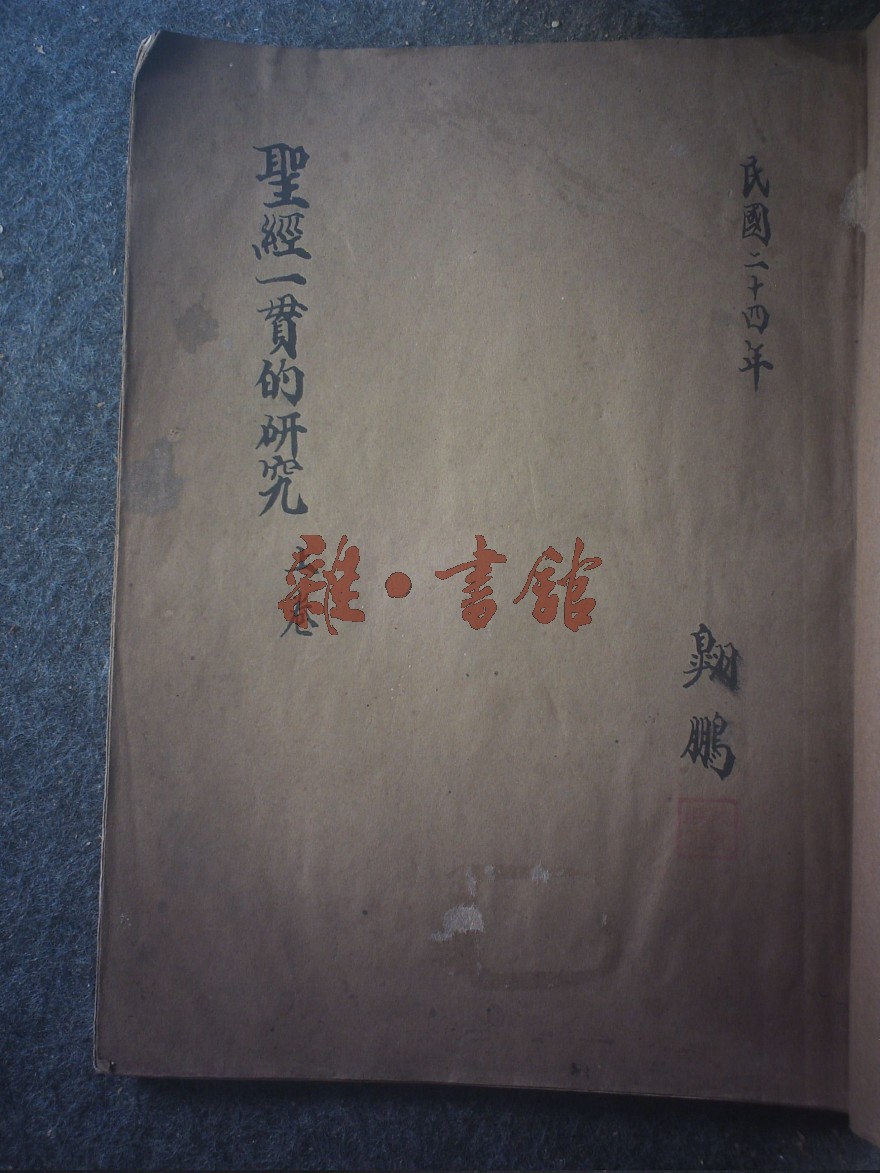 民國二十四年
翺鵬
聖經一貫的研究
上卷
雜·書館